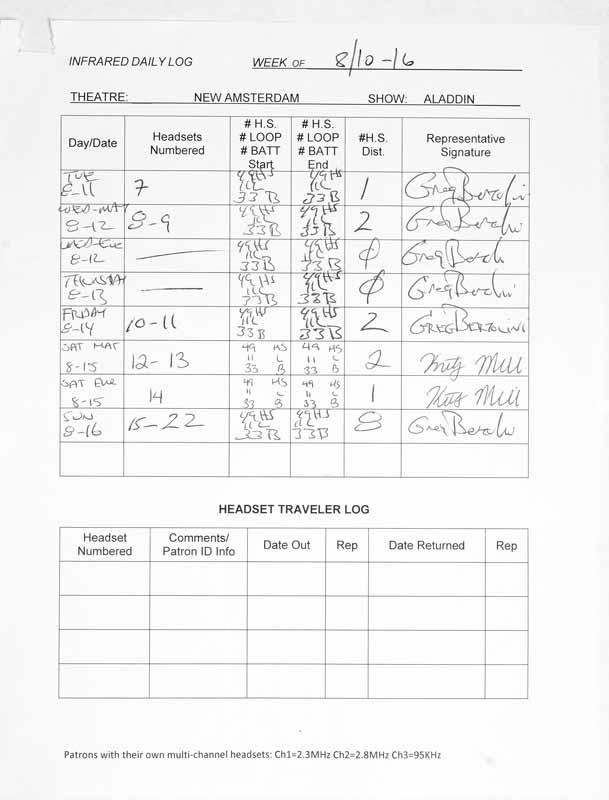 INFRARED DAILY LOG WEEK OF 8/10-16
THEATRE: NEW AMSTERDAM SHOW: ALADDIN
Day/Date Headsets Numbered # H.S. # LOOP # BATT Start # H.S. # LOOP # BATT End #H.S. Dist. Representative Signature
TUE 8-11 7 49HS 11L 33B 49HS 11L 33B 1 Greg Bertolini
WED-MAT 8-12 8-9 49HS 11L 33B 49HS 11L 33B 2 Greg Bertolini
WED EVE 8-12 — 49HS 11L 33B 49HS 11L 33B 0 Greg Bertolini
THURSDAY 8-13 — 49HS 11L 33B 49HS 11L 33B 0 Greg Bertolini
FRIDAY 8-14 10-11 49HS 11L 33B 49HS 11L 33B 2 GREG BERTOLINI
SAT MAT 8-15 12-13 49 HS 11 L 33 B 49 HS 11 L 33 B 2
SAT EVE 8-15 14 49 HS 11 L 33 B 49 HS 11 L 33 B 1
SUN 8-16 15-22 49HS 11L 33B 49HS 11L 33B 8 Greg Bertolini
HEADSET TRAVELER LOG
Headset Numbered Comments/ Patron ID Info Date Out Rep Date Returned Rep
Patrons with their own multi-channel headsets: Ch1=2.3MHz Ch2=2.8MHz Ch3=95KHz